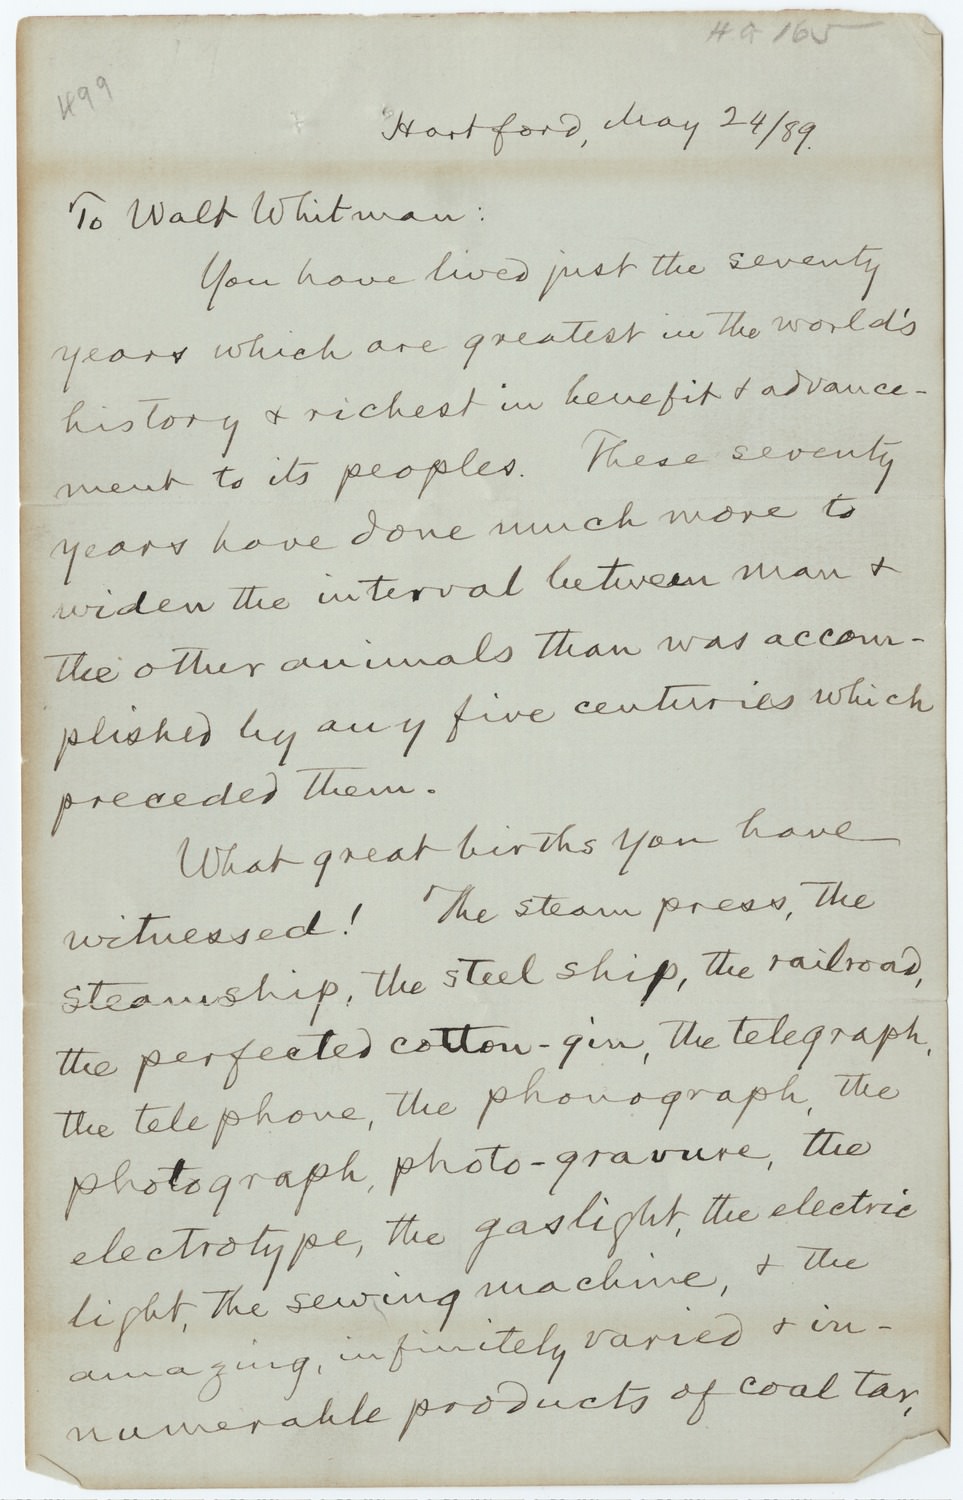 H G 165
499
Hartford, May 24/89.
To Walt Whitman:
You have lived just the seventy
years which are greatest in the world's
history & richest in benefit & advance-
ment to its peoples. These seventy
years have done much more to
widen the interval between man &
the other animals than was accom-
plished by any five centuries which
preceded them.
What great births you have
witnessed! The steam press, the
steamship, the steel ship, the railroad,
the perfected cotton-gin, the telegraph,
the telephone, the phonograph, the
photograph, photo-gravure, the
electrotype, the gaslight, the electric
light, the sewing machine, & the
amazing, infinitely varied & in-
numerable products of coal tar,